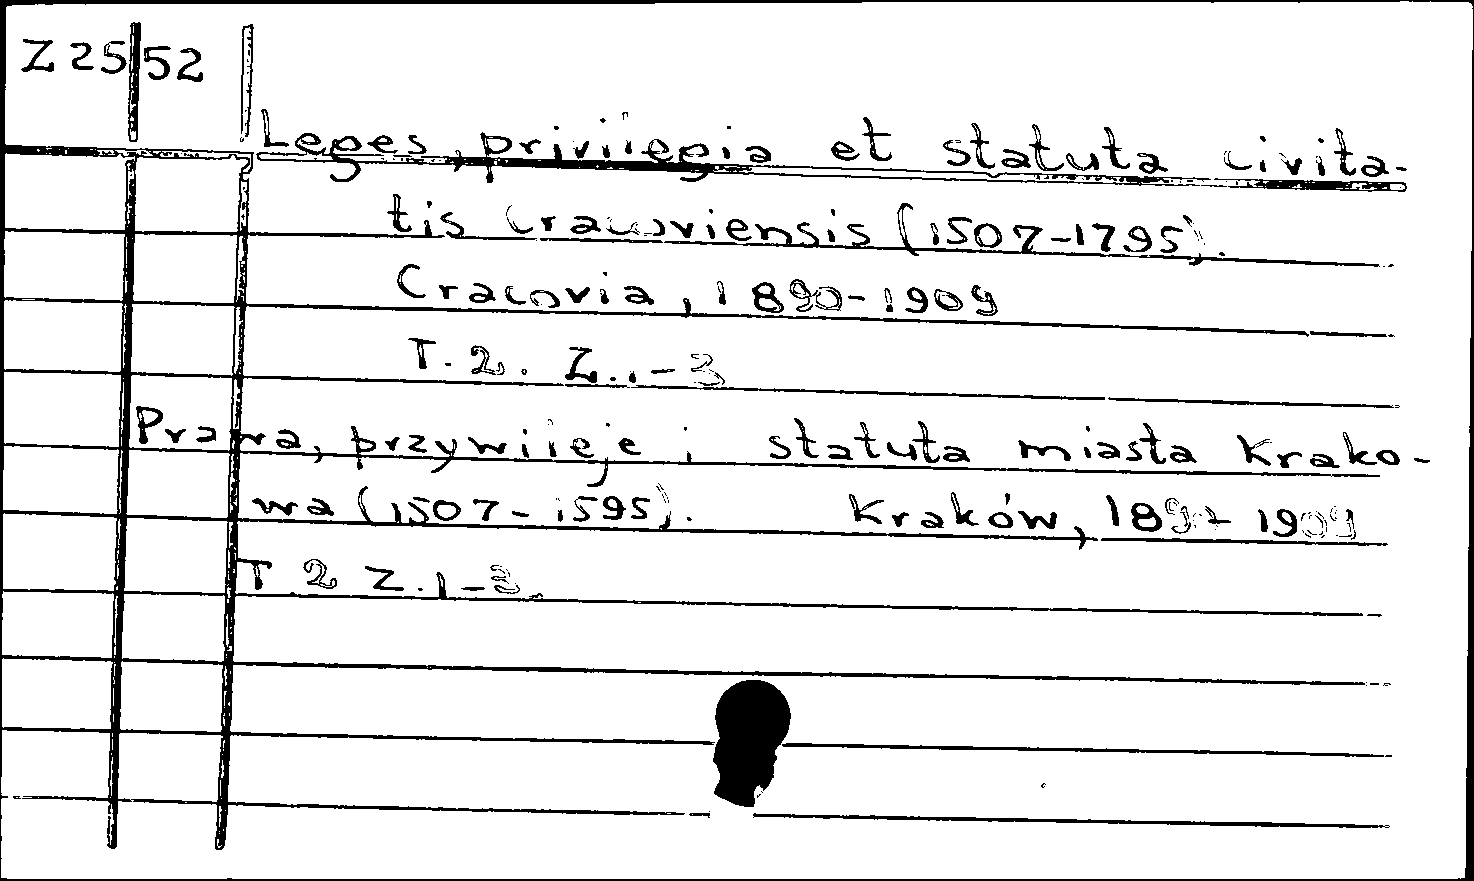 Z 2552
Leges, privilegia et statuta civita-
tis Cracoviensis (1507-1795).
Cracovia, 1890-1909
T. 2. Z. 1-3
Prawa, przywileje i statuta miasta Krako-
wa (1507-1595). Kraków, 1890-1909
T. 2 Z. 1-3.